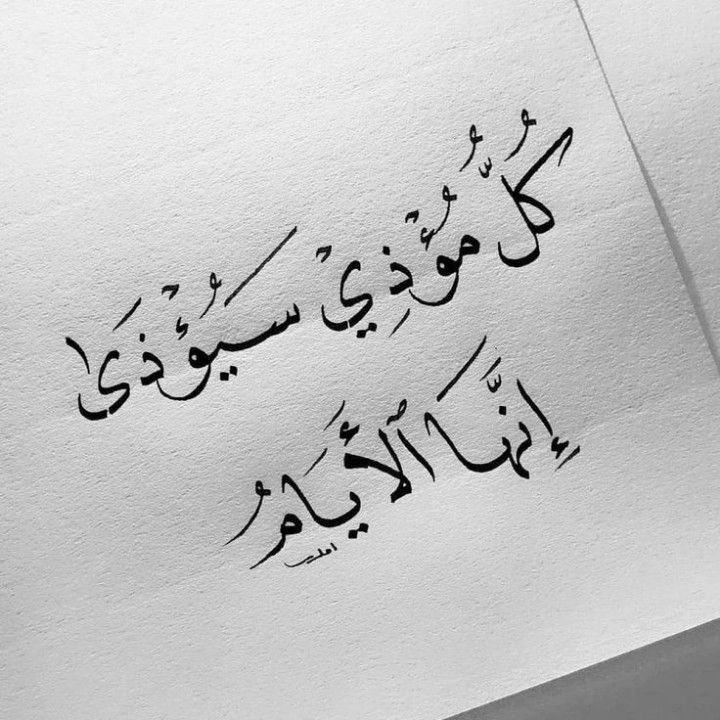 كُلُّ مُؤْذِيْ سَيُؤْذَىٰ
إِنَّهَا ٱلأَيَامُ